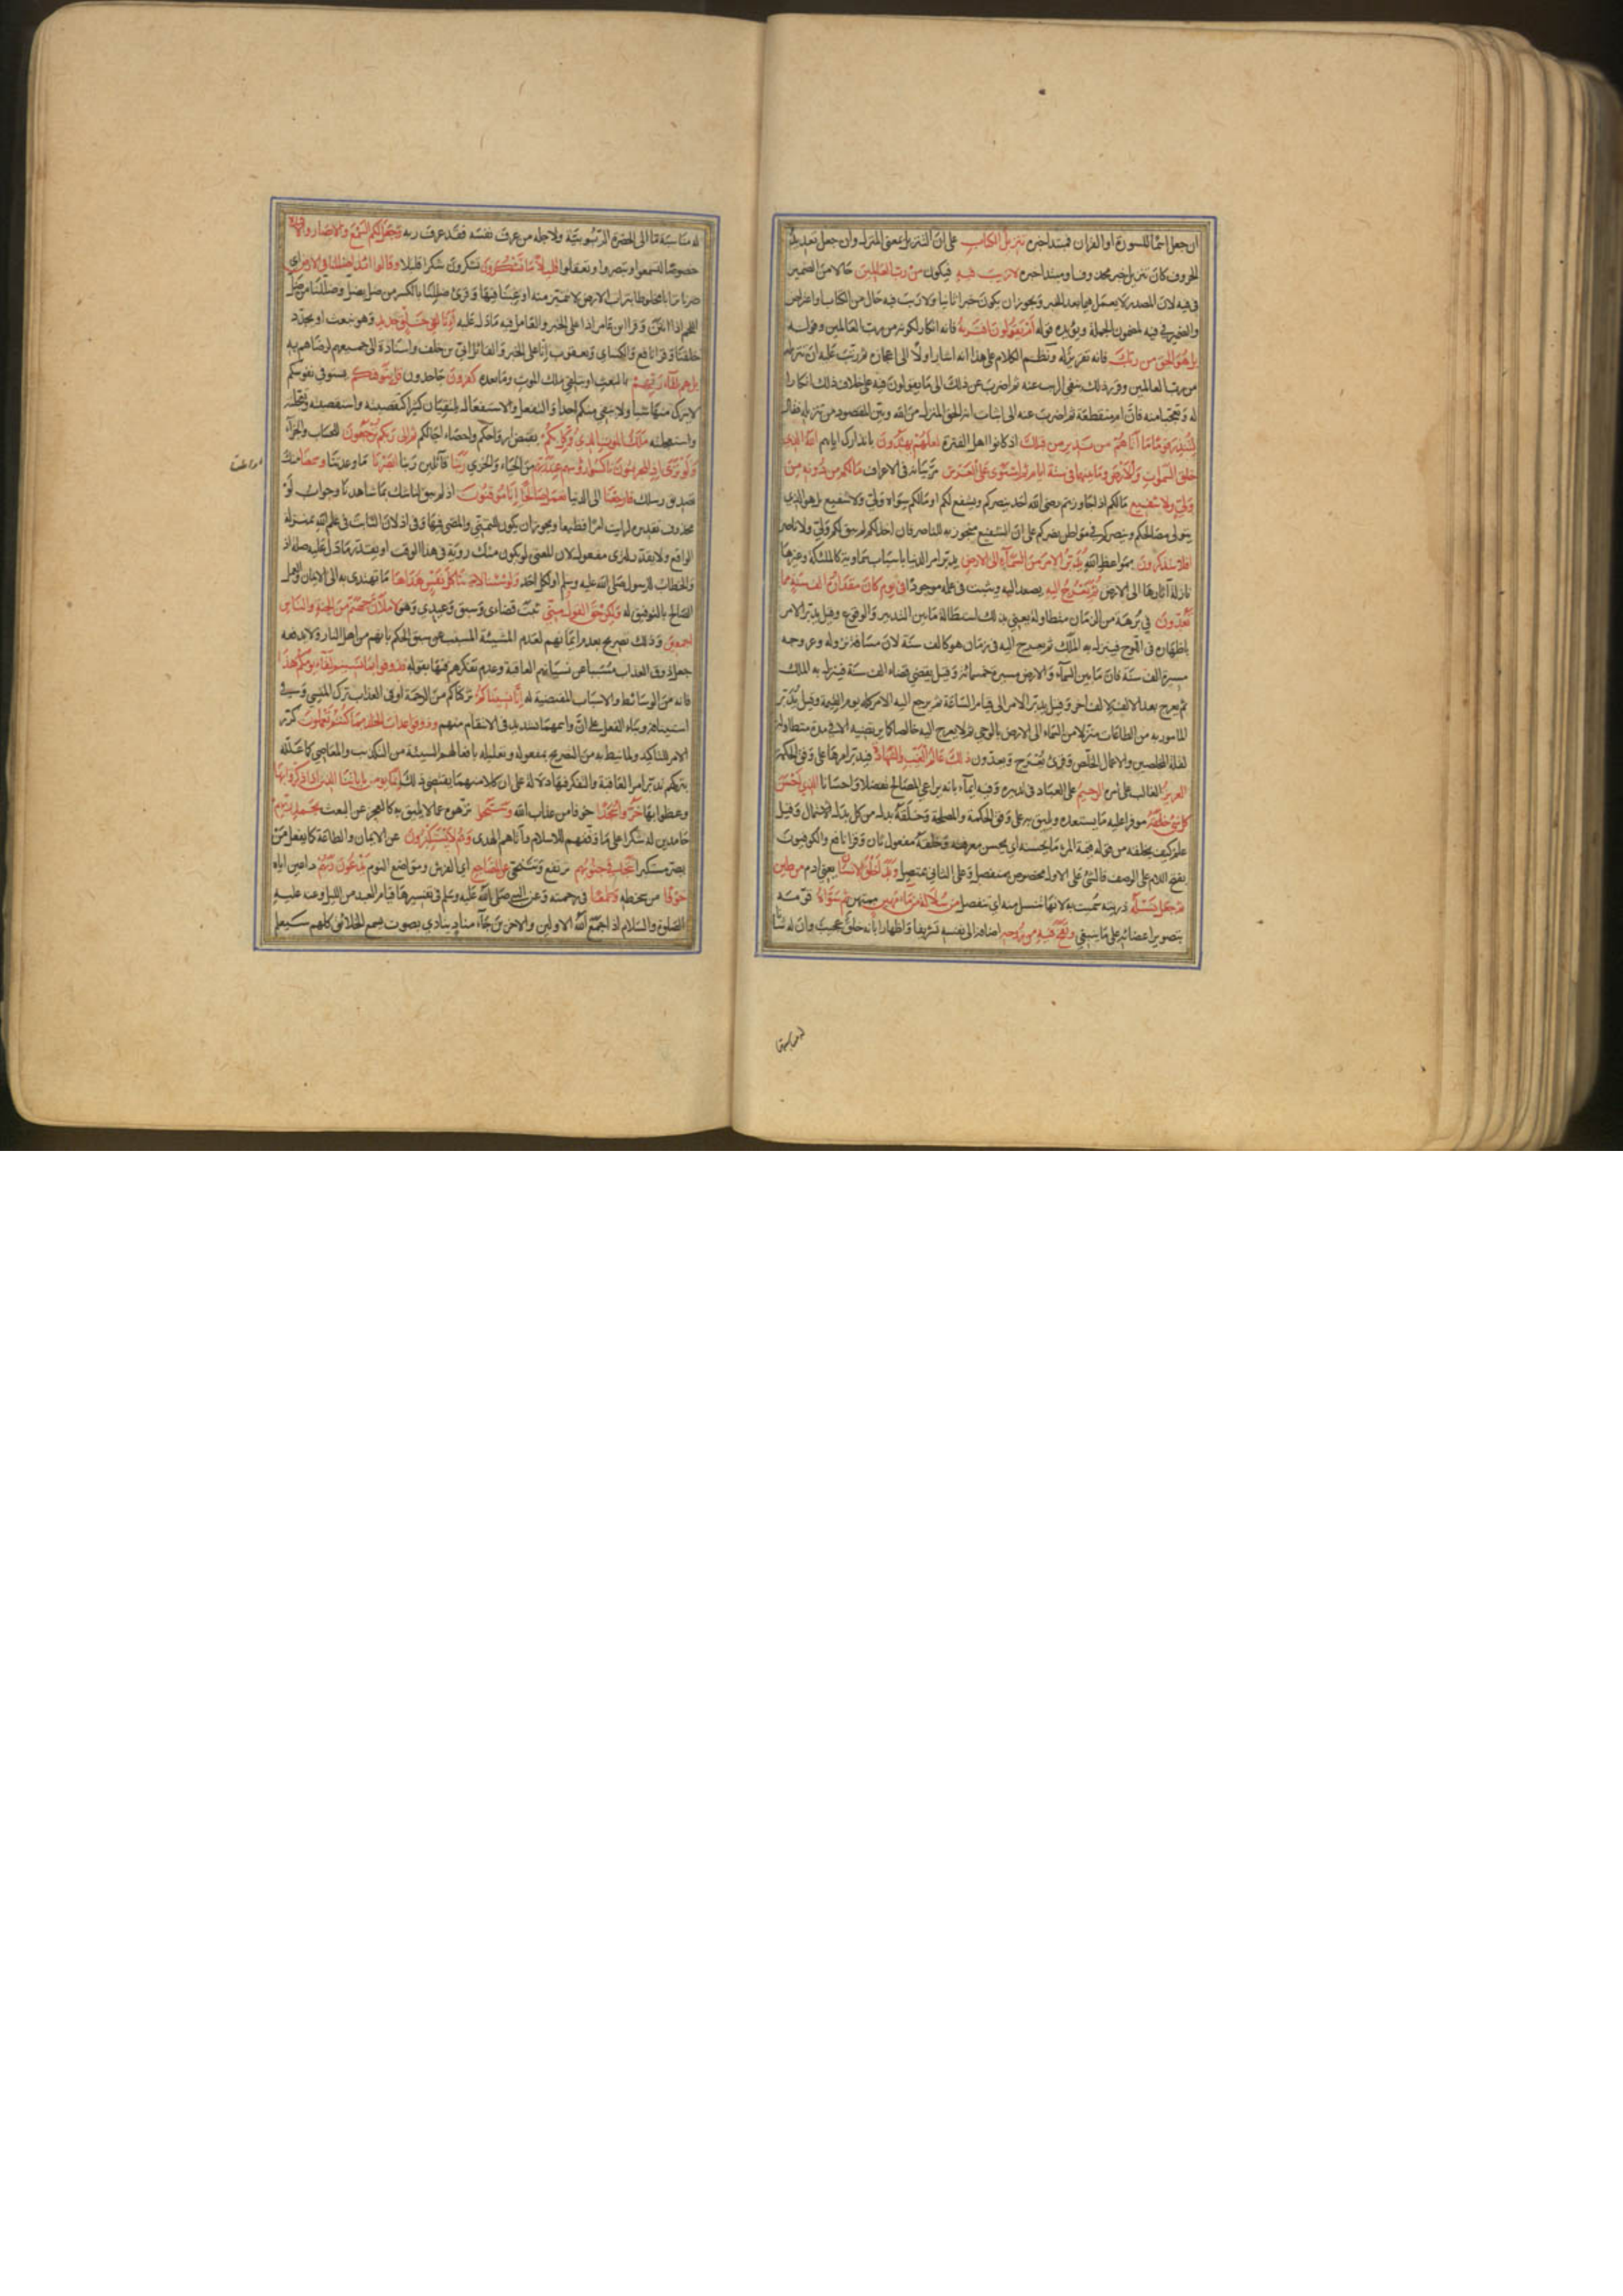 ان جعل اسما للسورة او القران فمبتدا خبره تنزيل الكتاب على ان التنزيل بمعنى المنزل وان جعل تعديد
للحروف كان تنزيل خبر محذوف او مبتدا خبره لا ريب فيه فيكون من رب العالمين حالا من الضمير
في فيه لان المصدر لا يعمل فيما بعد الخبر ويجوز ان يكون خبرا ثانيا ولا ريب فيه حال من الكتاب او اعتراض
والضمير في فيه لمضمون الجملة ويؤيده قوله ام يقولون افتريه فانه انكار لكونه من رب العالمين وقوله
بل هو الحق من ربك فانه تقرير له ونظم الكلام على هذا انه اشار اولا الى اعجازه ثم رتب عليه ان تنزيله
من رب العالمين وقرر ذلك بنفي الريب عنه ثم اضرب عن ذلك الى ما يقولون فيه على خلاف ذلك انكارا
له وتعجيبا منه فان ام منقطعة ثم اضرب عنه الى اثبات انه الحق المنزل من الله وبين المقصود من تنزيله فقال
لتنذر قوما ما اتاهم من نذير من قبلك اذ كانوا اهل الفترة لعلهم يهتدون بانذارك اياهم الله الذي
خلق السموات والارض وما بينهما في ستة ايام ثم استوى على العرش مر بيانه في الاعراف ما لكم من دونه من
ولي ولا شفيع ما لكم اذا جاوزتم رضى الله احد ينصركم ويشفع لكم او ما لكم سواه ولي ولا شفيع بل هو الذي
يتولى مصالحكم وينصركم في مواطن نصركم على ان الشفيع متجوز به للناصر فاذا خذلكم لم يبق لكم ولي ولا ناصر
افلا تتذكرون بمواعظ الله يدبر الامر من السماء الى الارض يدبر امر الدنيا باسباب سماوية كالملئكة وغيرها
نازلة اثارها الى الارض ثم يعرج اليه يصعد اليه ويثبت في علمه موجودا في يوم كان مقداره الف سنة مما
تعدون في برهة من الزمان متطاولة يعني بذلك استطالة ما بين التدبير والوقوع وقيل يدبر الامر
باظهاره في اللوح فينزل به الملك ثم يعرج اليه في زمان هو كالف سنة لان مسافة نزوله وعروجه
مسيرة الف سنة فان ما بين السماء والارض مسيرة خمسمائة وقيل يقضي قضاء الف سنة فينزل به الملك
ثم يعرج بعد الالف لالف اخر وقيل يدبر الامر الى قيام الساعة ثم يرجع اليه الامر كله يوم القيمة وقيل يدبر
المامور به من الطاعات منزلا من السماء الى الارض بالوحي ثم لا يعرج اليه خالصا كما يرتضيه الا في مدة متطاولة
لقلة المخلصين والاعمال الخلص وقرئ يعرج ويعدون ذلك عالم الغيب والشهادة فيدبر امرها على وفق الحكمة
العزيز الغالب على امره الرحيم على العباد في تدبيره وفيه ايماء بانه يراعي المصالح تفضلا واحسانا الذي احسن
كل شيء خلقه موفرا عليه ما يستعده ويليق به على وفق الحكمة والمصلحة وخلقه بدل من كل بدل الاشتمال وقيل
علم كيف يخلقه من قوله قيمة المرء ما يحسنه اي يحسن معرفته وخلقه مفعول ثان وقرا نافع والكوفيون
بفتح اللام على الوصف فالشيء على الاول مخصوص بمنفصل وعلى الثاني بمتصل وبدا خلق الانسان يعني ادم من طين
ثم جعل نسله ذريته سميت به لانها تنسل منه اي تنفصل من سلالة من ماء مهين ممتهن ثم سواه قومه
بتصوير اعضائه على ما ينبغي ونفخ فيه من روحه اضافه الى نفسه تشريفا واظهارا بانه خلق عجيب وان له شانا
له مناسبة
له مناسبة ما الى الحضرة الربوبية ولاجله من عرف نفسه فقد عرف ربه وجعل لكم السمع والابصار والافئدة
خصوصا لتسمعوا وتبصروا وتعقلوا قليلا ما تشكرون تشكرون شكرا قليلا وقالوا ائذا ضللنا في الارض اي
صرنا ترابا مخلوطا بتراب الارض لا نتميز منه او غبنا فيها وقرئ ضللنا بالكسر من ضل يضل وصللنا من صل
اللحم اذا انتن وقرا ابن عامر اذا على الخبر والعامل فيه ما دل عليه أئنا لفي خلق جديد وهو نبعث او يجدد
خلقنا وقرا نافع والكسائي ويعقوب انا على الخبر والقائل ابي بن خلف واسناده الى جميعهم لرضاهم به
بل هم بلقاء ربهم بالبعث او بتلقي ملك الموت وما بعده كافرون جاحدون قل يتوفيكم يستوفي نفوسكم
لا يترك منها شيئا ولا يبقي منكم احدا والتفعل والاستفعال يلتقيان كثيرا كتقصيته واستقصيته وتعجلته
واستعجلته ملك الموت الذي وكل بكم بقبض ارواحكم واحصاء اجالكم ثم الى ربكم ترجعون للحساب والجزاء
ولو ترى اذ المجرمون ناكسوا رؤسهم عند ربهم من الحياء والخزي ربنا قائلين ربنا ابصرنا ما وعدتنا وسمعنا منك
تصديق رسلك فارجعنا الى الدنيا نعمل صالحا انا موقنون اذ لم يبق لنا شك بما شاهدنا وجواب لو
محذوف تقديره لرايت امرا فظيعا ويجوز ان يكون للتمني والمضي فيها وفي اذ لان الثابت في علم الله بمنزلة
الواقع ولا يقدر لترى مفعول لان المعنى لو يكون منك رؤية في هذا الوقت او يقدر ما دل عليه صلة اذ
والخطاب للرسول صلى الله عليه وسلم او لكل احد ولو شئنا لاتينا كل نفس هداها ما تهتدي به الى الايمان والعمل
الصالح بالتوفيق له ولكن حق القول مني ثبت قضائي وسبق وعيدي وهو لاملان جهنم من الجنة والناس
اجمعين وذلك تصريح بعدم ايمانهم لعدم المشيئة المسبب عن سبق الحكم بانهم من اهل النار ولا يدفعه
جعل ذوق العذاب مسببا عن نسيانهم العاقبة وعدم تفكرهم فيها بقوله فذوقوا بما نسيتم لقاء يومكم هذا
فانه من الوسائط والاسباب المقتضية له انا نسيناكم تركناكم من الرحمة او في العذاب ترك المنسي وفي
استينافه وبناء الفعل على ان واسمها تشديد في الانتقام منهم وذوقوا عذاب الخلد بما كنتم تعملون كرر
الامر للتاكيد ولما نيط به من التصريح بمفعوله وتعليله بافعالهم السيئة من التكذيب والمعاصي كما علله
بتركهم تدبر امر العاقبة والتفكر فيها دلالة على ان كلا منهما يقتضي ذلك انما يؤمن باياتنا الذين اذا ذكروا بها
وعظوا بها خروا سجدا خوفا من عذاب الله وسبحوا نزهوه عما لا يليق به كالعجز عن البعث بحمد ربهم
حامدين له شكرا على ما وفقهم للاسلام واتاهم الهدى وهم لا يستكبرون عن الايمان والطاعة كما يفعل من
يصر مستكبرا تتجافى جنوبهم ترتفع وتتنحى عن المضاجع اي الفرش ومواضع النوم يدعون ربهم داعين اياه
خوفا من سخطه وطمعا في رحمته وعن النبي صلى الله عليه وسلم في تفسيرها قيام العبد من الليل وعنه عليه
الصلوة والسلام اذا جمع الله الاولين والاخرين جاء مناد ينادي بصوت يسمع الخلائق كلهم سيعلم